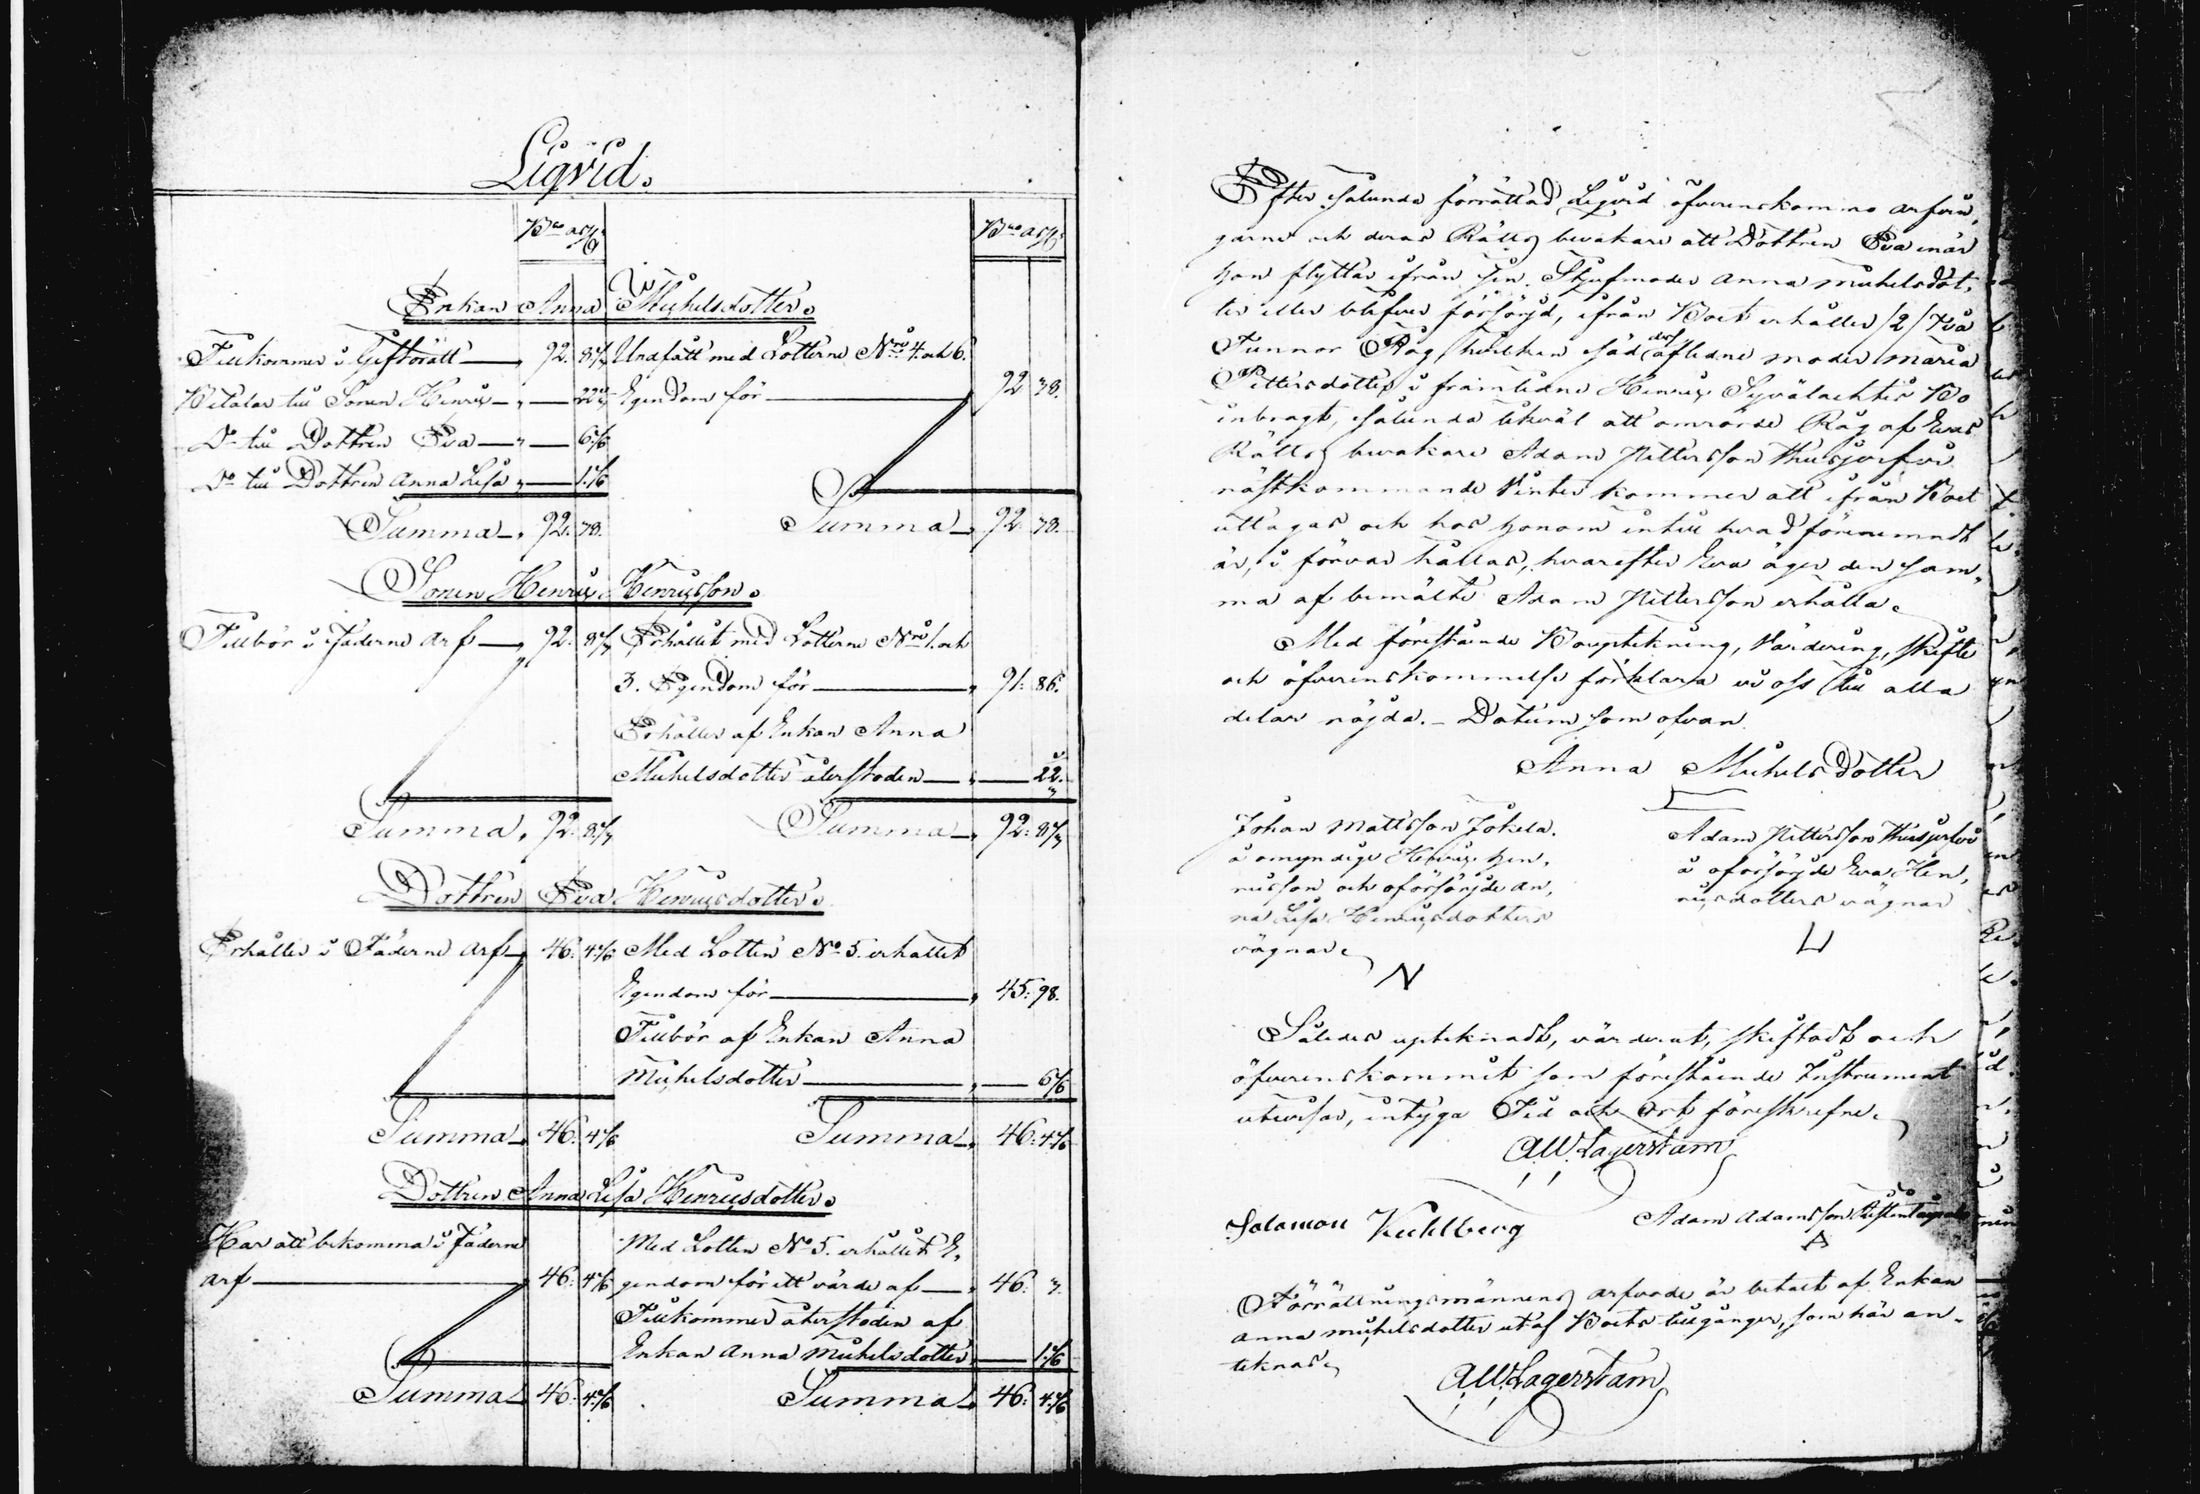 Liqvid.
Enkan Anna Michelsdotter.
Tillkommer i Giftorätt — 92. Undfått med Lotterne Nro 4 och 6.
Betalar till Sonen Henrix — Egendom för — 92 78.
Do till Dottren Eva —
Do till Dottren Anna Lisa —
Summa — 92. 78. Summa — 92. 78.
Sonen Henrix Henrixsson.
Tillkommer i Fäderne arf — 92. Erhållit med Lotterne Nro 1. och
3. Egendom för — 91. 86.
Erhåller af Enkan Anna
Michelsdotter återstoden —
Summa. 92. Summa — 92.
Dottren Eva Henrixsdotter.
Erhåller i Fäderne arf — 46. Med Lotten No 5. erhållit
Egendom för — 45. 98.
Tillkommer af Enkan Anna
Michelsdotter —
Summa — 46. Summa — 46.
Dottren Anna Lisa Henrixsdotter.
Har att bekomma i Fäderne Med Lotten No 5. erhållit E,
arf — 46. gendom för ett värde af — 46.
Tillkommer återstoden af
Enkan Anna Michelsdotter —
Summa — 46. Summa — 46.
Efter sålunda förrättad Liqvid öfverenskommo arfvin,
garne och deras Rätts bevakare att Dottren Eva när
hon flyttar ifrån sin Stjufmoder Anna Michelsdot,
ter eller blifver försörjd, ifrån Boet erhåller /2/ två
Tunnor Råg, hvilken säd des aflidne moder Maria
Pittersdotter i framlidne Henrix Syvälachtis Bo
inbragt, sålunda likväl att omrörde Råg af Evas
Rätts bevakare Adam Pittersson
nästkommande Vinter kommer att ifrån Boet
uttagas och hos honom intill hvad förenemndt
är, i förvar hållas, hvarefter Eva äger den sam,
ma af bemälte Adam Pittersson erhålla.
Med förestående Bouptekning, Värdering, skifte
och öfverenskommelse förklara vi oss till alla
delar nöjda. — Datum som ofvan.
Anna Michels Dotter
Johan Mattsson Jokela. Adam Pittersson
å omyndige Henrix Hen, å oförsörjde Eva Hen,
rixsson och oförsörjde An, rixsdotters vägnar
na Lisa Henrixsdotters
vägnar.
Således upteknadt, värderat, skiftadt och
öfverenskommit som förestående Instrument
utvisar, intyga Tid och Ort föreskrefne.
AW Lagerstam
Salamon Kuhlberg Adam Adamsson
Förrättningsmännens arfvode är betalt af Enkan
Anna Michelsdotter utaf Boets tillgångar, som här an-
teknas.
AW Lagerstam